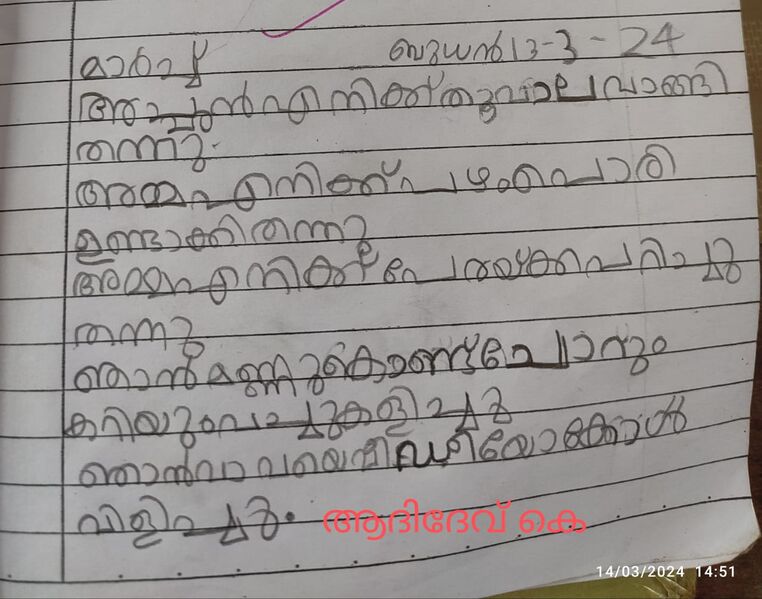 മാർച്ച് ബുധൻ 13-3-24
അച്ഛൻ എനിക്ക് തൂവാല വാങ്ങി
തന്നു.
അമ്മ എനിക്ക് പഴംപൊരി
ഉണ്ടാക്കി തന്നു
അമ്മ എനിക്ക് പേരയ്ക്ക പറിച്ചു
തന്നു
ഞാൻ മണ്ണുകൊണ്ട് ചോറും
കറിയും വെച്ചു കളിച്ചു
ഞാൻ വാവയെ വീഡിയോ കോൾ
വിളിച്ചു. ആദിദേവ് കെ
14/03/2024 14:51